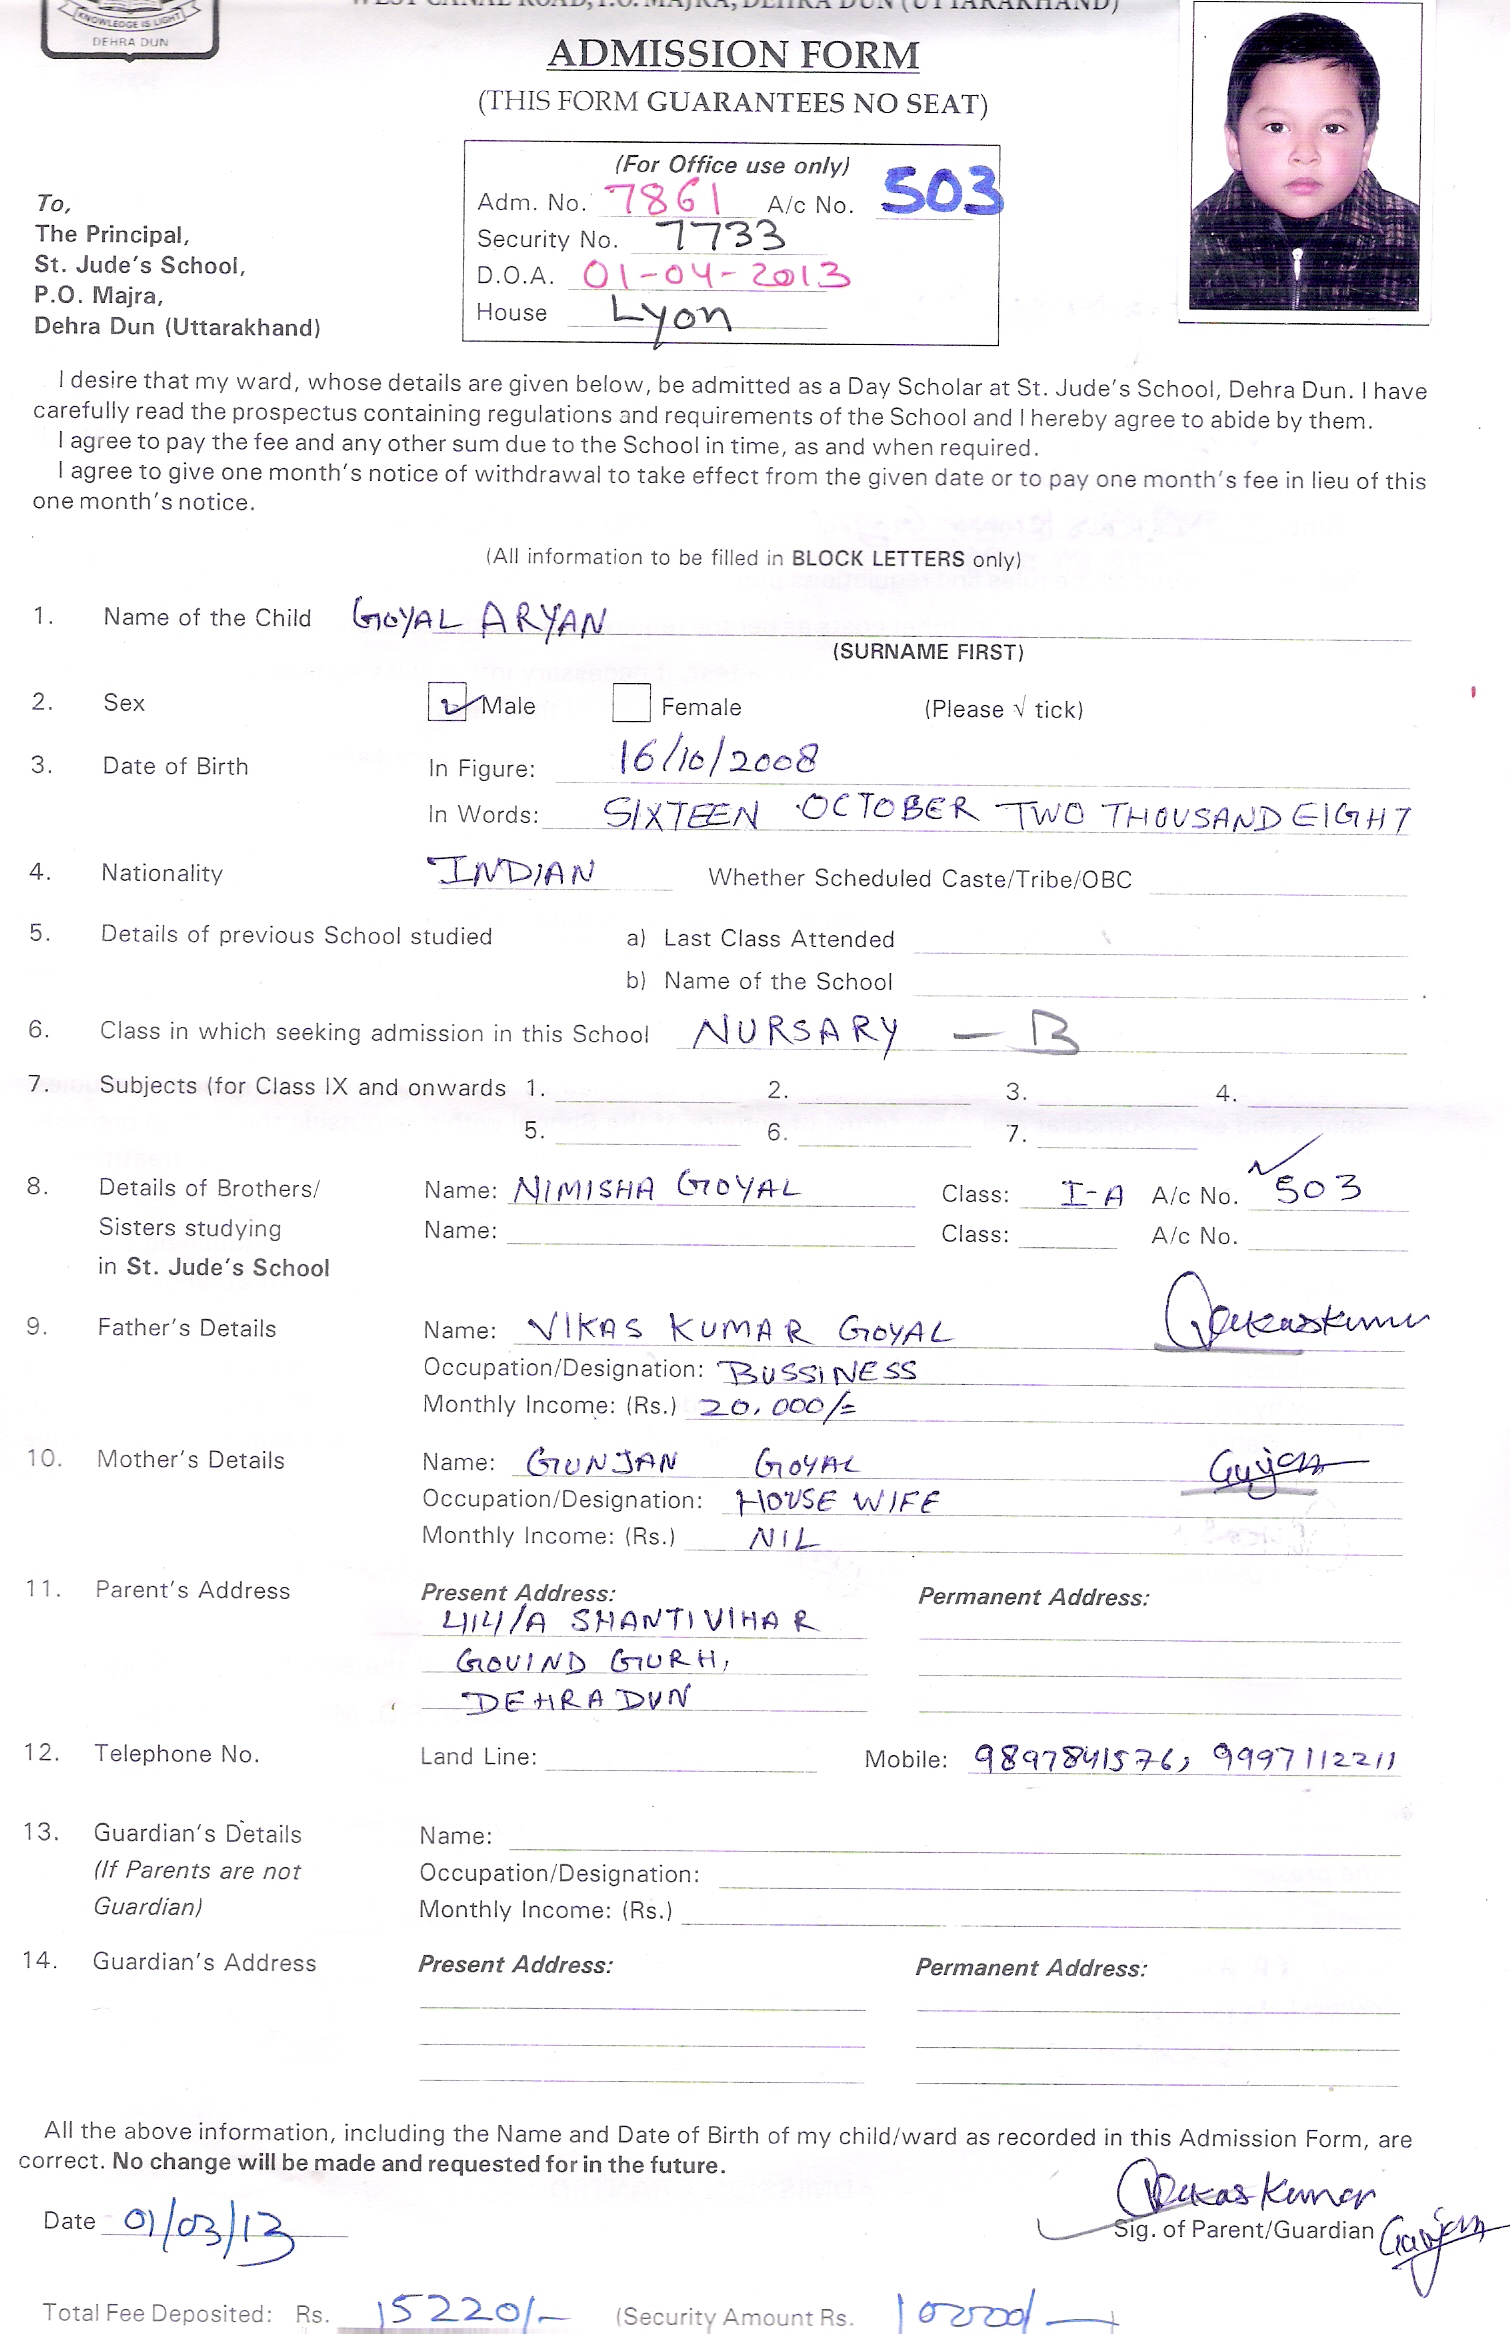 WEST CANAL ROAD, P.O. MAJRA, DEHRA DUN (UTTARAKHAND)
KNOWLEDGE IS LIGHT
DEHRA DUN
ADMISSION FORM
(THIS FORM GUARANTEES NO SEAT)
(For Office use only)
Adm. No. 7861 A/c No. 503
Security No. 7733
D.O.A. 01-04-2013
House Lyon
To,
The Principal,
St. Jude's School,
P.O. Majra,
Dehra Dun (Uttarakhand)
I desire that my ward, whose details are given below, be admitted as a Day Scholar at St. Jude's School, Dehra Dun. I have
carefully read the prospectus containing regulations and requirements of the School and I hereby agree to abide by them.
I agree to pay the fee and any other sum due to the School in time, as and when required.
I agree to give one month's notice of withdrawal to take effect from the given date or to pay one month's fee in lieu of this
one month's notice.
(All information to be filled in BLOCK LETTERS only)
1. Name of the Child GOYAL ARYAN
(SURNAME FIRST)
2. Sex Male Female (Please √ tick)
3. Date of Birth In Figure: 16/10/2008
In Words: SIXTEEN OCTOBER TWO THOUSAND EIGHT
4. Nationality INDIAN Whether Scheduled Caste/Tribe/OBC
5. Details of previous School studied a) Last Class Attended
b) Name of the School
6. Class in which seeking admission in this School NURSARY - B
7. Subjects (for Class IX and onwards 1. 2. 3. 4.
5. 6. 7.
8. Details of Brothers/ Name: NIMISHA GOYAL Class: I-A A/c No. 503
Sisters studying Name: Class: A/c No.
in St. Jude's School
9. Father's Details Name: VIKAS KUMAR GOYAL Vikas Kumar
Occupation/Designation: BUSSINESS
Monthly Income: (Rs.) 20,000/=
10. Mother's Details Name: GUNJAN GOYAL Gunjan
Occupation/Designation: HOUSE WIFE
Monthly Income: (Rs.) NIL
11. Parent's Address Present Address: Permanent Address:
414/A SHANTI VIHAR
GOVIND GURH,
DEHRADUN
12. Telephone No. Land Line: Mobile: 9897841576, 9997112211
13. Guardian's Details Name:
(If Parents are not Occupation/Designation:
Guardian) Monthly Income: (Rs.)
14. Guardian's Address Present Address: Permanent Address:
All the above information, including the Name and Date of Birth of my child/ward as recorded in this Admission Form, are
correct. No change will be made and requested for in the future.
Vikas Kumar
Date 01/03/13 Sig. of Parent/Guardian Gunjan
Total Fee Deposited: Rs. 15220/- (Security Amount Rs. 10000/-)